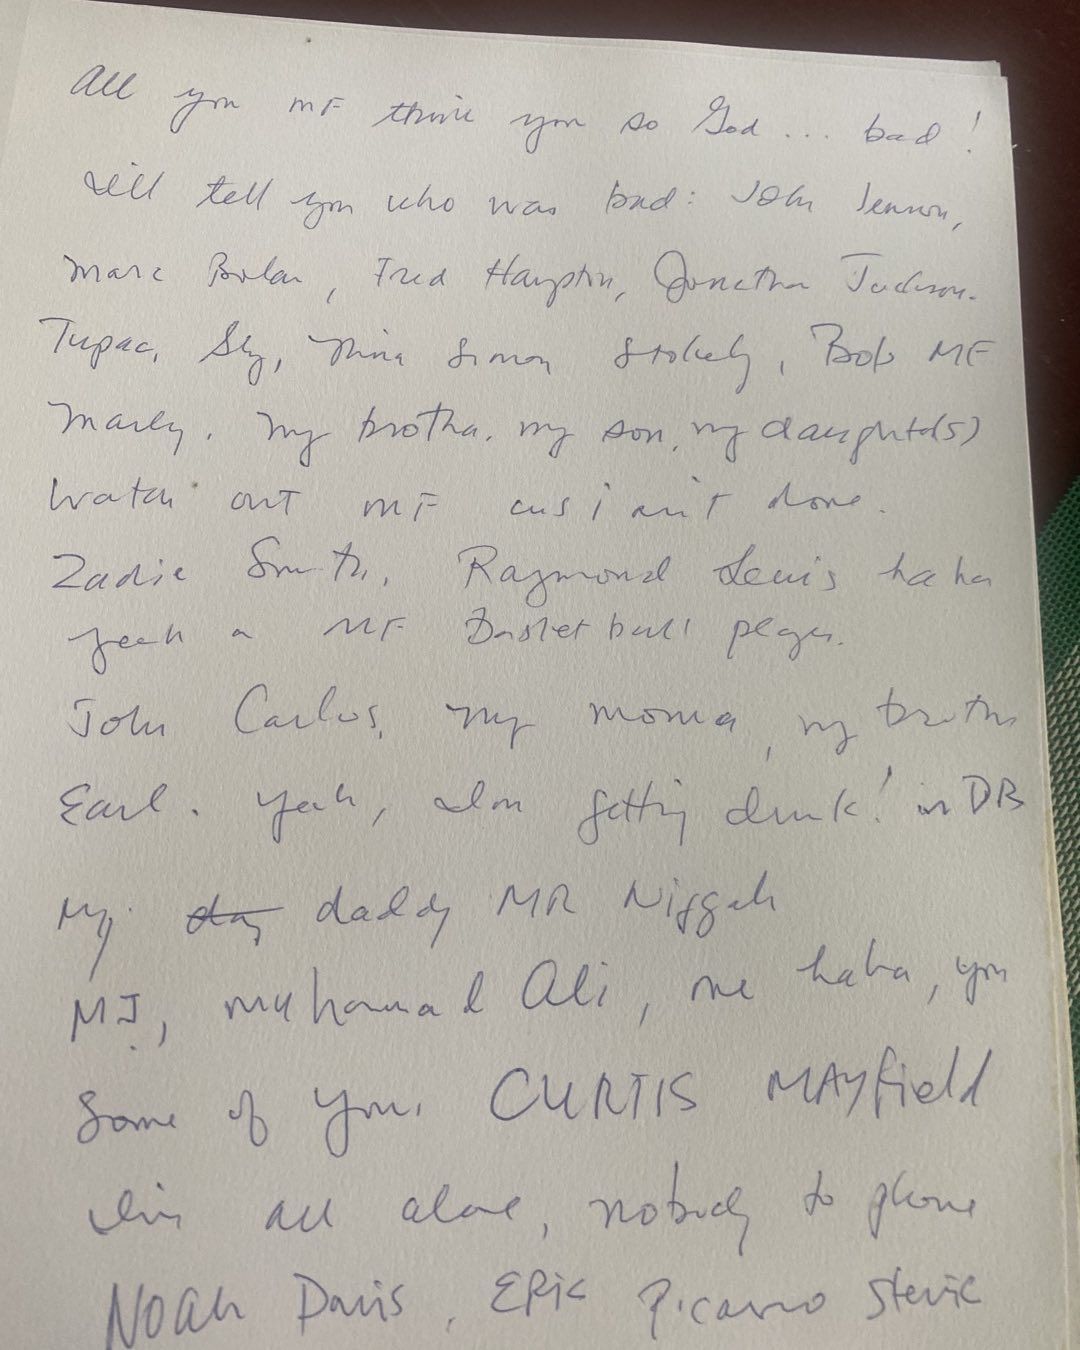 All you MF think you so God... bad!
I'll tell you who was bad: John Lennon,
Marc Bolan, Fred Hampton, Jonathan Jackson.
Tupac, Sly, Nina Simon Stokely, Bob MF
Marley. My brotha, my son, my daughter(s)
Watch out MF cus i ain't done.
Zadie Smith, Raymond Lewis ha ha
yeah a MF Basketball player.
John Carlos, my moma, my brother
Earl. Yeah, I'm getting drunk! in DB
My daddy MR Niggah
MJ, Muhammad Ali, me haha, you
Some of you. CURTIS MAYfield
I'm all alone, nobody to phone
NOAH Davis, ERIC Picasso Stevie